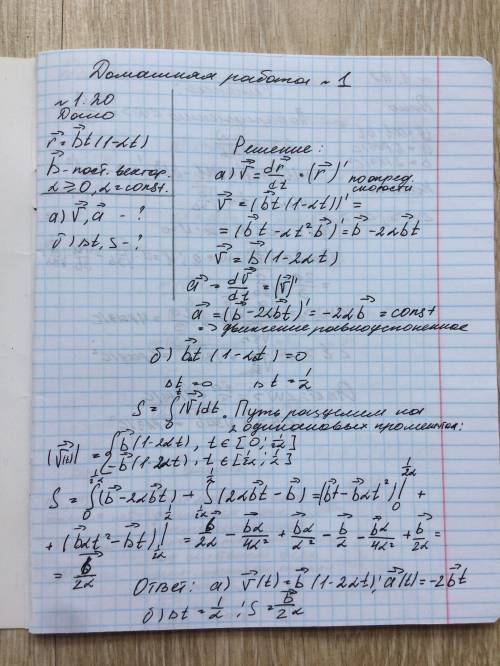 Домашняя работа №1
№1.20
Дано
r⃗ = b⃗t(1-αt)
b⃗ - пост. вектор.
α ≥ 0, α = const.
а) v⃗, a⃗ - ?
б) Δt, S - ?
Решение:
а) v⃗ = dr⃗/dt = (r⃗)' по опред. скорости
v⃗ = (b⃗t(1-αt))' =
= (b⃗t - αt²·b⃗)' = b⃗ - 2αb⃗t
v⃗ = b⃗(1-2αt)
a⃗ = dv⃗/dt = (v⃗)'
a⃗ = (b⃗ - 2αb⃗t)' = -2αb⃗ = const
=> движение равноускоренное
б) b⃗t(1-αt) = 0
Δt = 0 Δt = 1/α
S = ∫₀ |v⃗|dt. Путь разделим на
2 одинаковых промежутка:
|v⃗(t)| = { b⃗(1-2αt), t ∈ [0; 1/2α]
-b⃗(1-2αt), t ∈ [1/2α; 1/α]
S = ∫₀^(1/2α) (b⃗ - 2αb⃗t) + ∫_(1/2α)^(1/α) (2αb⃗t - b⃗) = (b⃗t - b⃗αt²)|₀^(1/2α) +
+ (b⃗αt² - b⃗t)|_(1/2α)^(1/α) = b⃗/2α - b⃗α/4α² + b⃗α/α² - b⃗/α - b⃗α/4α² + b⃗/2α =
= b⃗/2α
Ответ: а) v⃗(t) = b⃗(1-2αt); a⃗(t) = -2b⃗t
б) Δt = 1/α; S = b⃗/2α